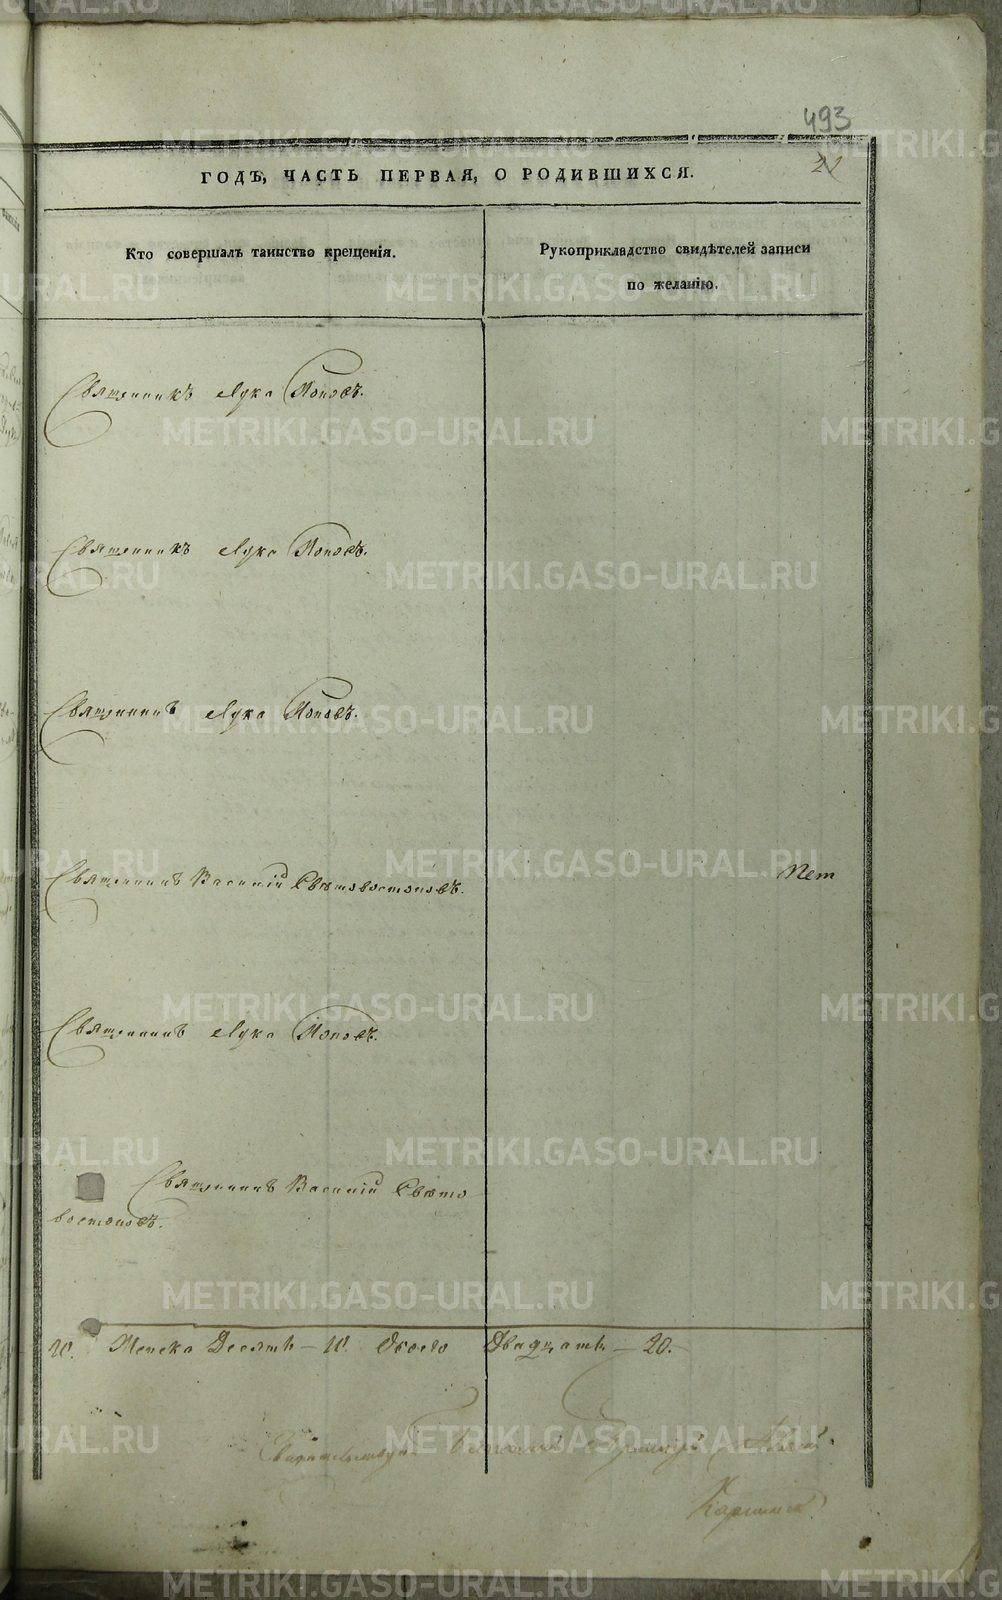 493
22
ГОДЪ, ЧАСТЬ ПЕРВАЯ, О РОДИВШИХСЯ.
Кто совершалъ таинство крещенія.
Рукоприкладство свидѣтелей записи
по желанію.
Священникъ Лука Поповъ.
Священникъ Лука Поповъ.
Священникъ Лука Поповъ.
Священникъ Василій Свѣтовостоковъ.
Нет
Священникъ Лука Поповъ.
Священникъ Василій Свѣто
востоковъ.
10. Женска Десять – 10. Обоего Двадцать – 20.
METRIKI.GASO-URAL.RU